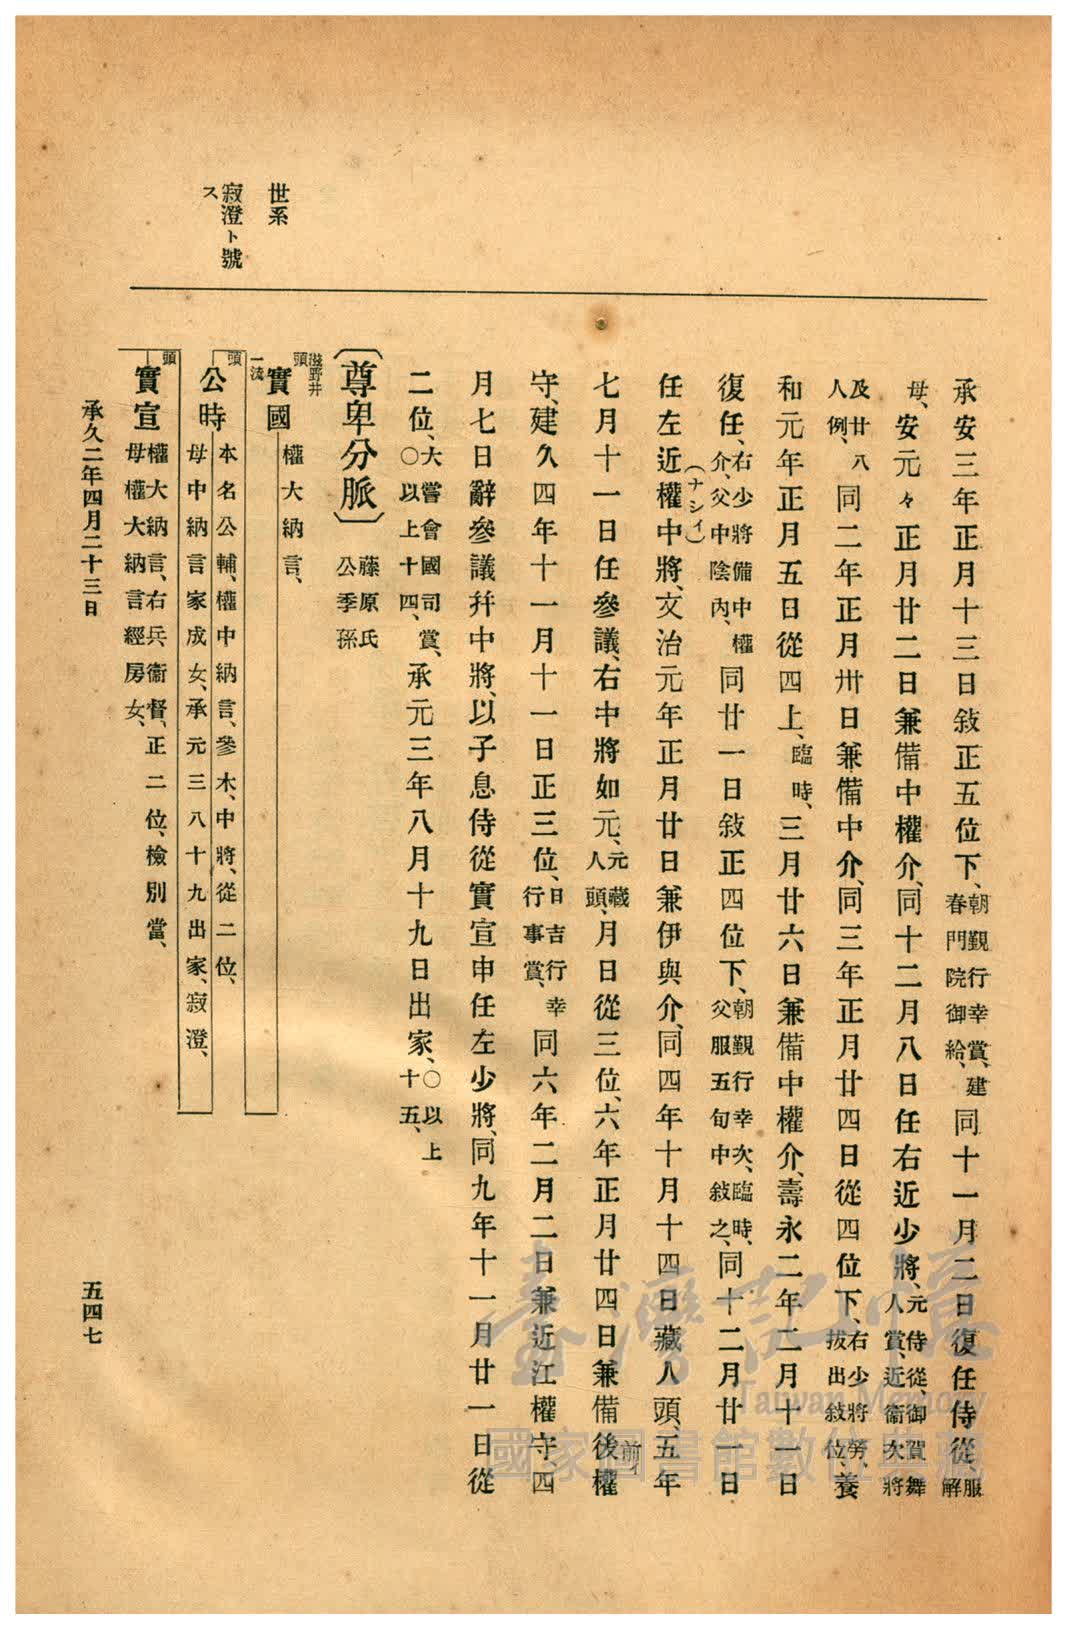 世系
寂澄ト號
ス
承安三年正月十三日敍正五位下、朝覲行幸賞、建春門院御給、同十一月二日復任侍從、服解
母、安元々正月廿二日兼備中權介、同十二月八日任右近少將、元侍從、御賀舞人賞、近衞次將
及廿八人例、同二年正月卅日兼備中介、同三年正月廿四日從四位下、右少將勞、拔出敍位、養
和元年正月五日從四上、臨時、三月廿六日兼備中權介、壽永二年二月十一日
復任、右少將備中權介、父中陰內、(ナシイ)同廿一日敍正四位下、朝覲行幸次、臨時、父服五旬中敍之、同十二月廿一日
任左近權中將、文治元年正月廿日兼伊與介、同四年十月十四日藏人頭、五年
七月十一日任參議、右中將如元、元藏人頭、月日從三位、六年正月廿四日兼備後權
前
守、建久四年十一月十一日正三位、日吉行幸行事賞、同六年二月二日兼近江權守、四
月七日辭參議幷中將、以子息侍從實宣申任左少將、同九年十一月廿一日從
二位、大嘗會國司賞、〇以上十四、承元三年八月十九日出家、〇以上十五、
〔尊卑分脈〕藤原氏公季孫
滋野井
頭實國 權大納言、
一流
頭公時 本名公輔、權中納言、參木、中將、從二位、
母中納言家成女、承元三八十九出家、寂澄、
頭實宣 權大納言、右兵衞督、正二位、檢別當、
母權大納言經房女、
承久二年四月二十三日
五四七
臺灣記憶
Taiwan Memory
國家圖書館數位典藏